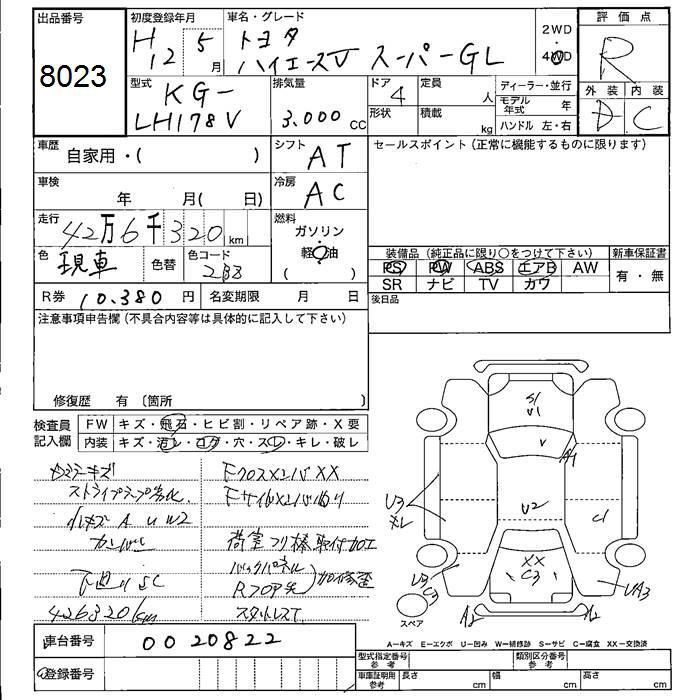 出品番号
8023
初度登録年月
H12 5月
車名・グレード
トヨタ
ハイエースV スーパーGL
2WD
4WD
評価点
R
外装 内装
D C
型式
KG-
LH178V
排気量
3.000 cc
ドア
4
形状
定員 人
積載 kg
ディーラー・並行
モデル年式 年
ハンドル 左・右
車歴
自家用・( )
シフト
AT
セールスポイント(正常に機能するものに限ります)
車検
年 月( 日)
冷房
AC
走行
42万6千320km
燃料
ガソリン
軽油
( )
色
現車
色替
色コード
2B8
装備品(純正品に限り〇をつけて下さい)
PS PW ABS エアB AW
SR ナビ TV カワ
新車保証書
有・無
R券 10.380円
名変期限 月 日
後日品
注意事項申告欄(不具合内容等は具体的に記入して下さい)
修復歴 有〔箇所
検査員
記入欄
FW キズ・飛石・ヒビ割・リペア跡・X要
内装 キズ・汚レ・コゲ・穴・スレ・キレ・破レ
Fクロスメンバ XX
小キズ A U W2
下廻りSC
426320km
荷室フリ棒取付加工
バックパネル
スタットレス
S1
V1
V
A1
U3
U2
C1
XX
C3
U3
C3
UA3
A2
A2
スペア
A-キズ E-エクボ U-凹み W-補修跡 S-サビ C-腐食 XX-交換済
車台番号
0020822
登録番号
型式指定番号
参考
類別区分番号
参考
車庫証明用
参考
長さ cm
幅 cm
高さ cm